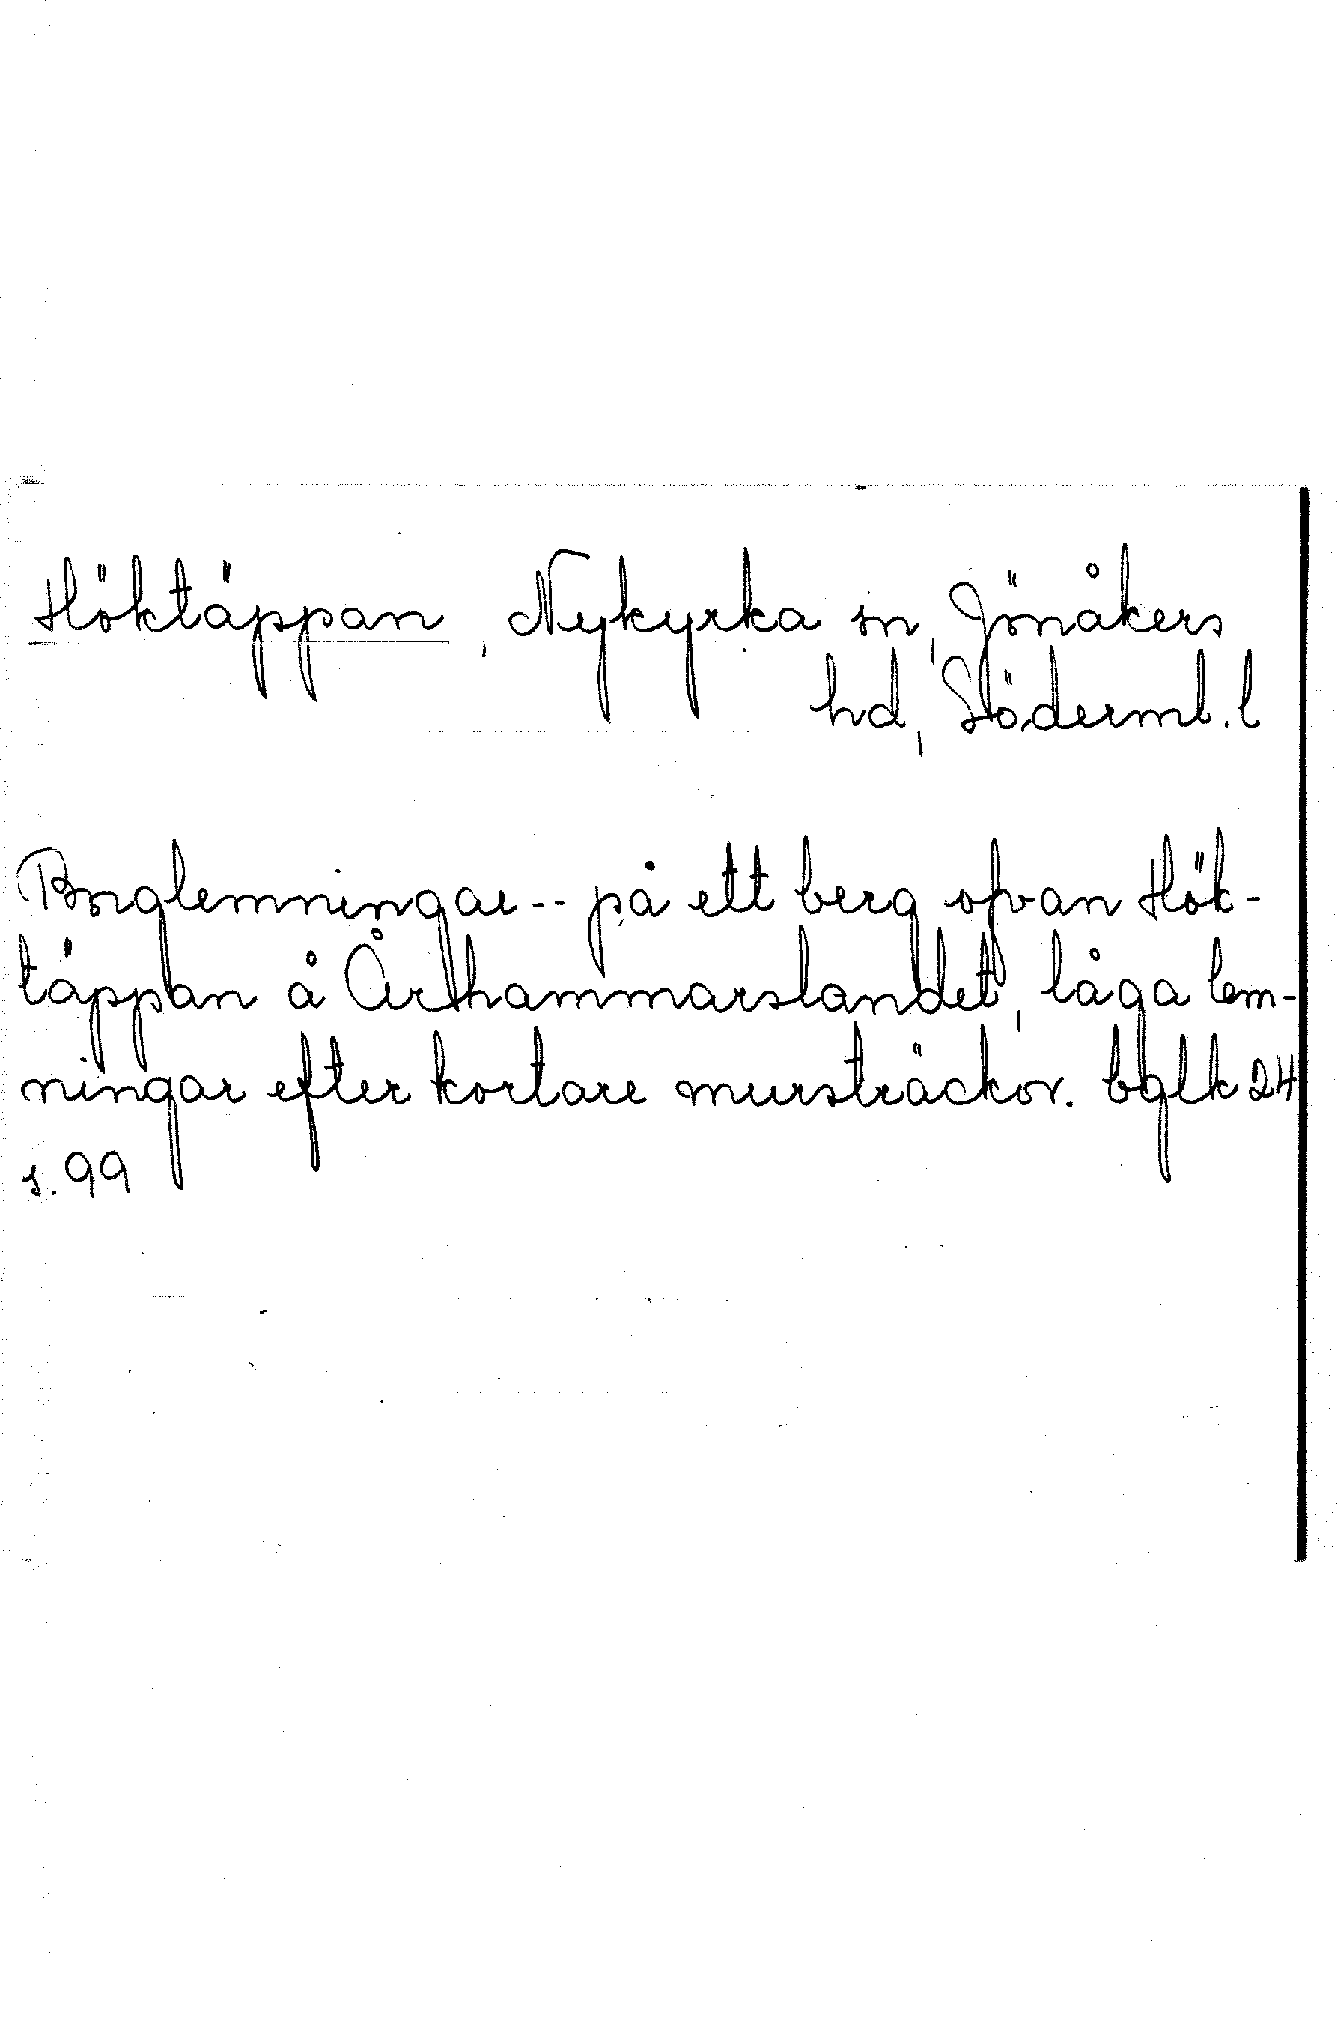 Höktäppan, Nykyrka sn, Jönåkers
hd, Söderml. l
Borglemningar -- på ett berg ofvan Hök-
täppan å Århammarslandet, låga lem-
ningar efter kortare mursträckor. bglk 24
s. 99